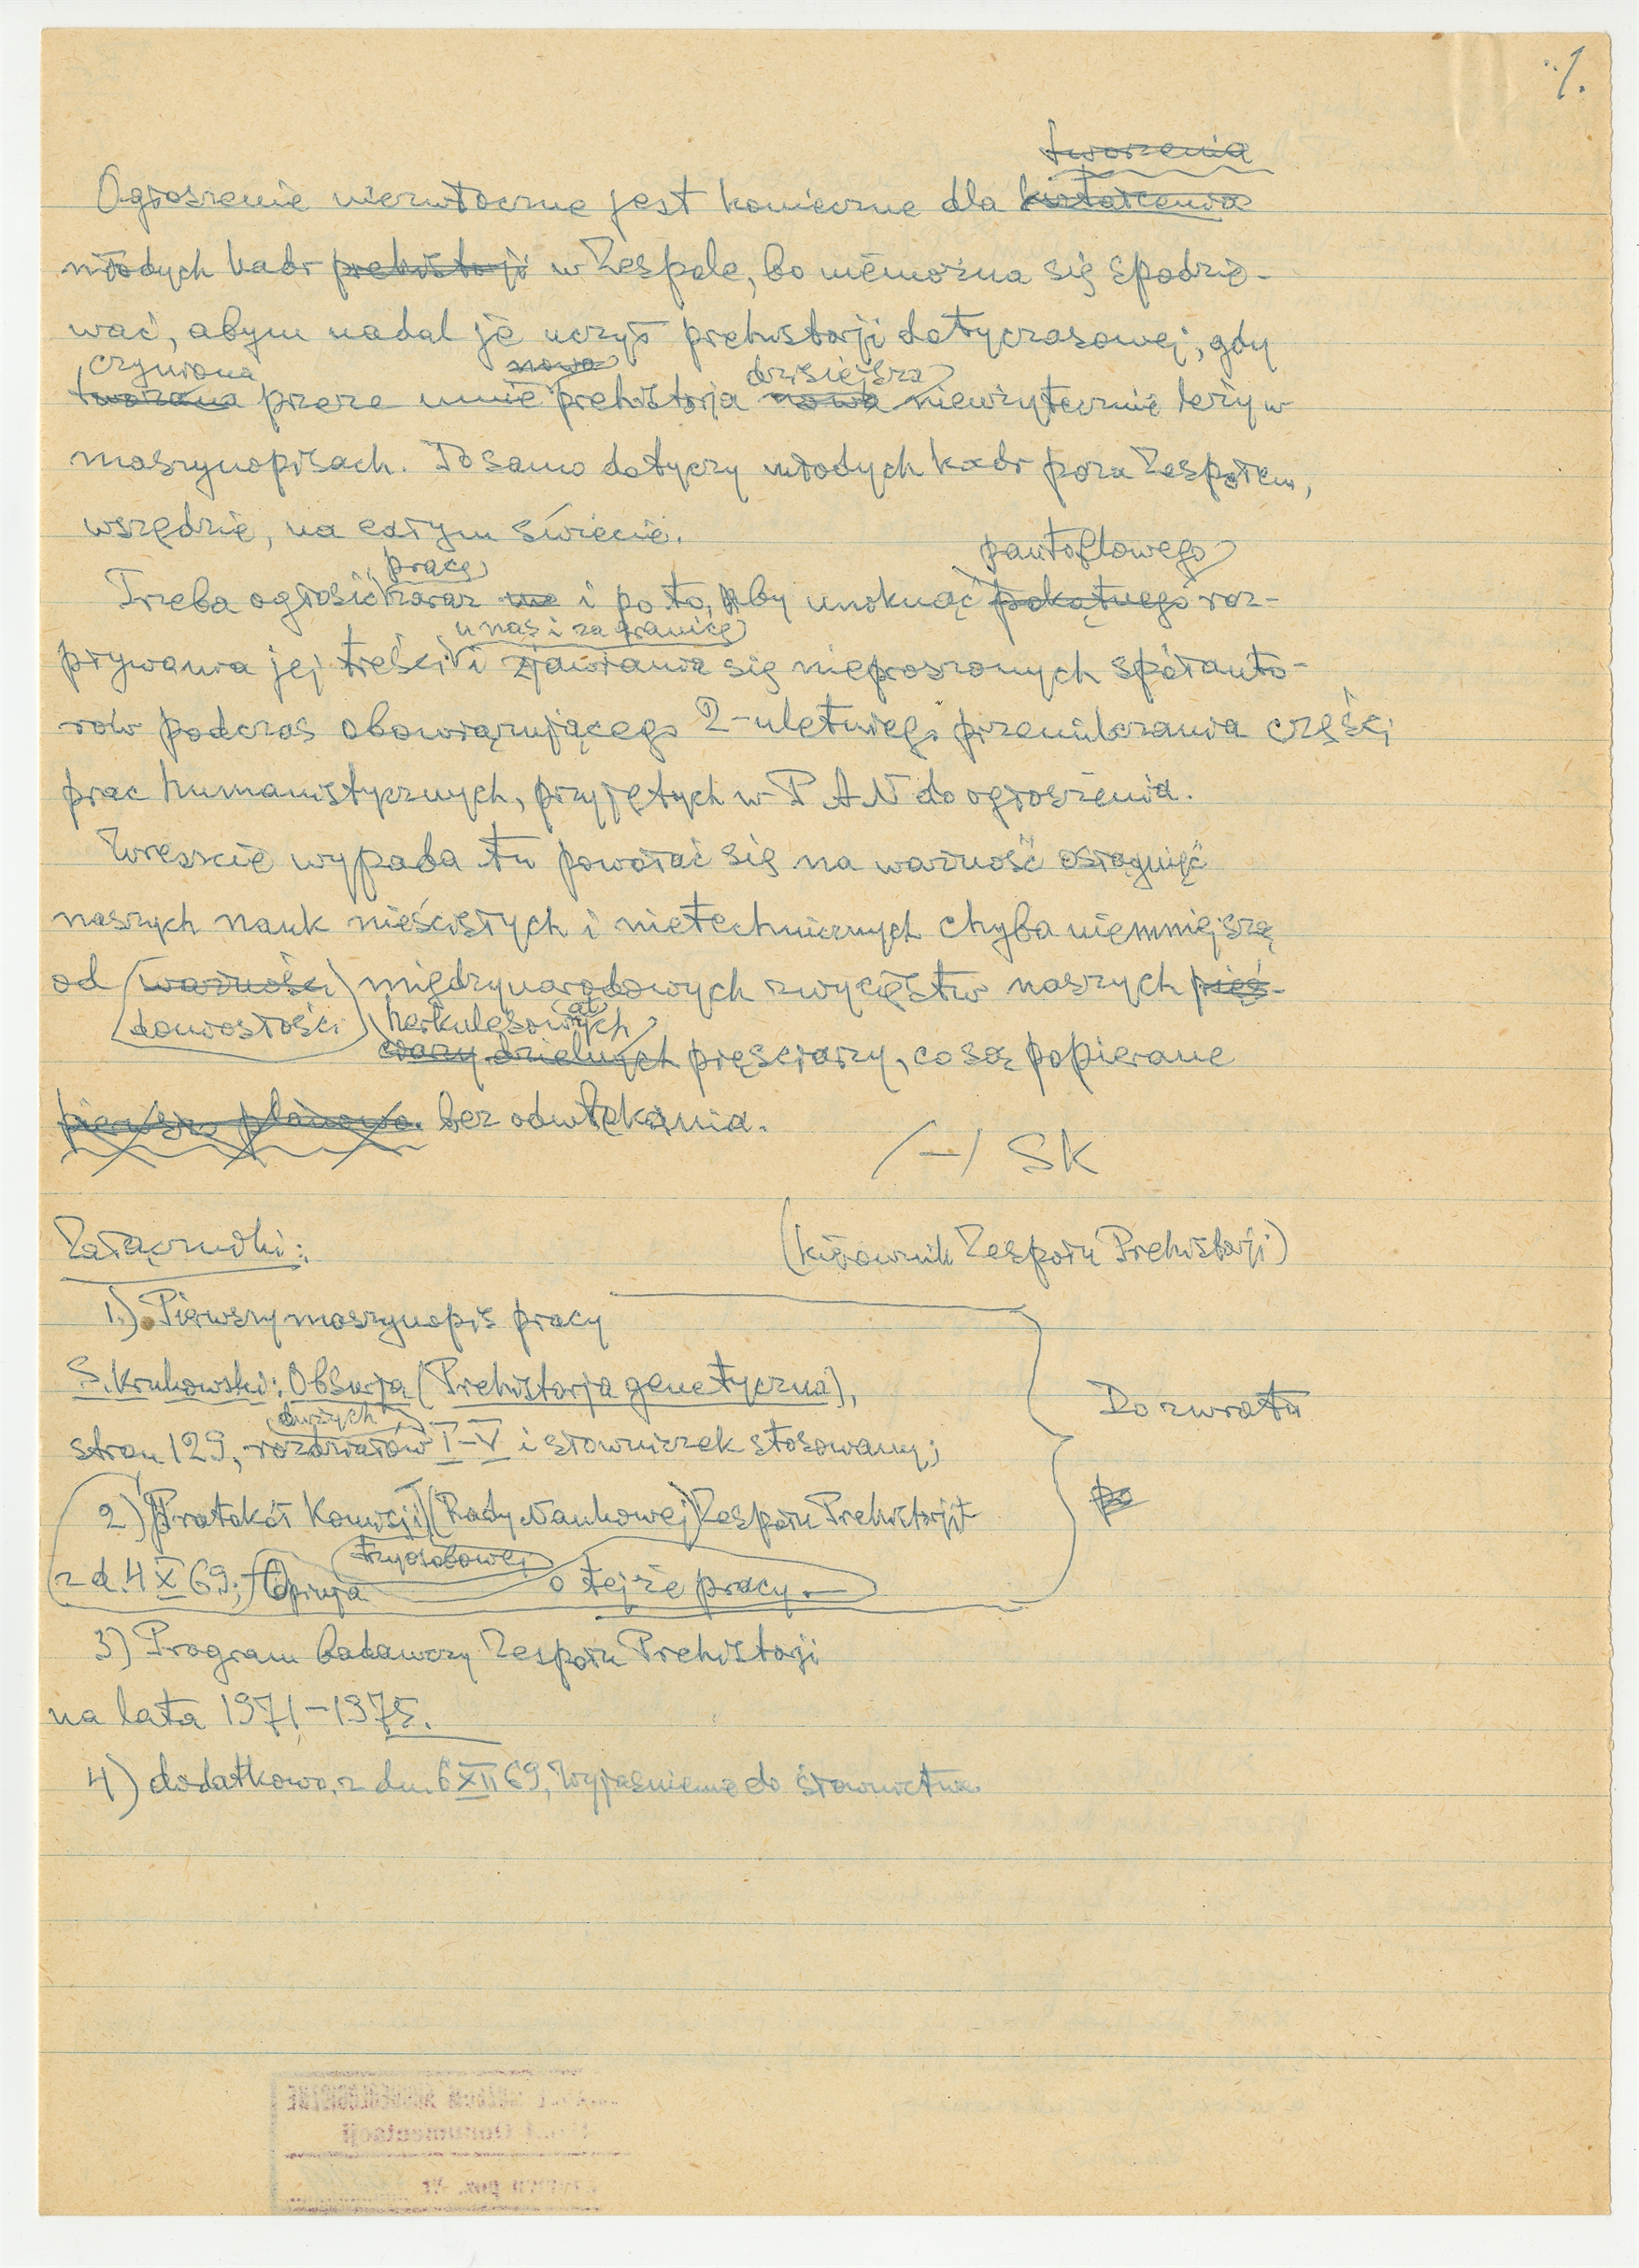 1.
tworzenia
Ogłoszenie niezwłoczne jest konieczne dla kształcenia
młodych kadr prehistorji w Zespole, bo niemożna się spodzie-
wać, abym nadal je uczył prehistorji dotyczasowej, gdy
czyniona nowa dzisiejsza
tworzona przeze mnie prehistorja nowa niewżytecznie leży w
maszynopisach. To samo dotyczy młodych kadr poza Zespołem,
wszędzie, na całym świecie.
pracę pantoflowego
Trzeba ogłosić zaraz i po to, aby uniknąć pokątnego roz-
u nas i za granicą
pływania jej treści i zjawiania się nieproszonych spółauto-
rów podczas obowiązującego 2-uletniego przemilczania części
prac humanistycznych, przyjętych w PAN do ogłoszenia.
Wreszcie wypada tu powołać się na ważność osiągnięć
naszych nauk nieścisłych i nietechnicznych chyba niemniejszą
od ważności międzynarodowych zwycięstw naszych pięś-
doniosłości herkulesowych
ciarzy dzielnych pięściarzy, co są popierane
pierwszo planowo. bez odwlekania.
/-/ SK
Załączniki:
(kierownik Zespołu Prehistorji)
1.) Pierwszy maszynopis pracy
S. Krukowski: Obsurja (Prehistorja genetyczna),
dużych
stron 129, rozdziałów I-V i słowniczek stosowany;
Do zwrotu
2) Protokół Komisji (Rady Naukowej) Zespołu Prehistorji
po
trzyosobowej
z d. 4 X 69; Opinja o tejże pracy.
3) Program badawczy Zespołu Prehistorji
na lata 1971-1975.
4) dodatkowo, z dn. 6 XII 69, Wyjaśnienie do słownictwa